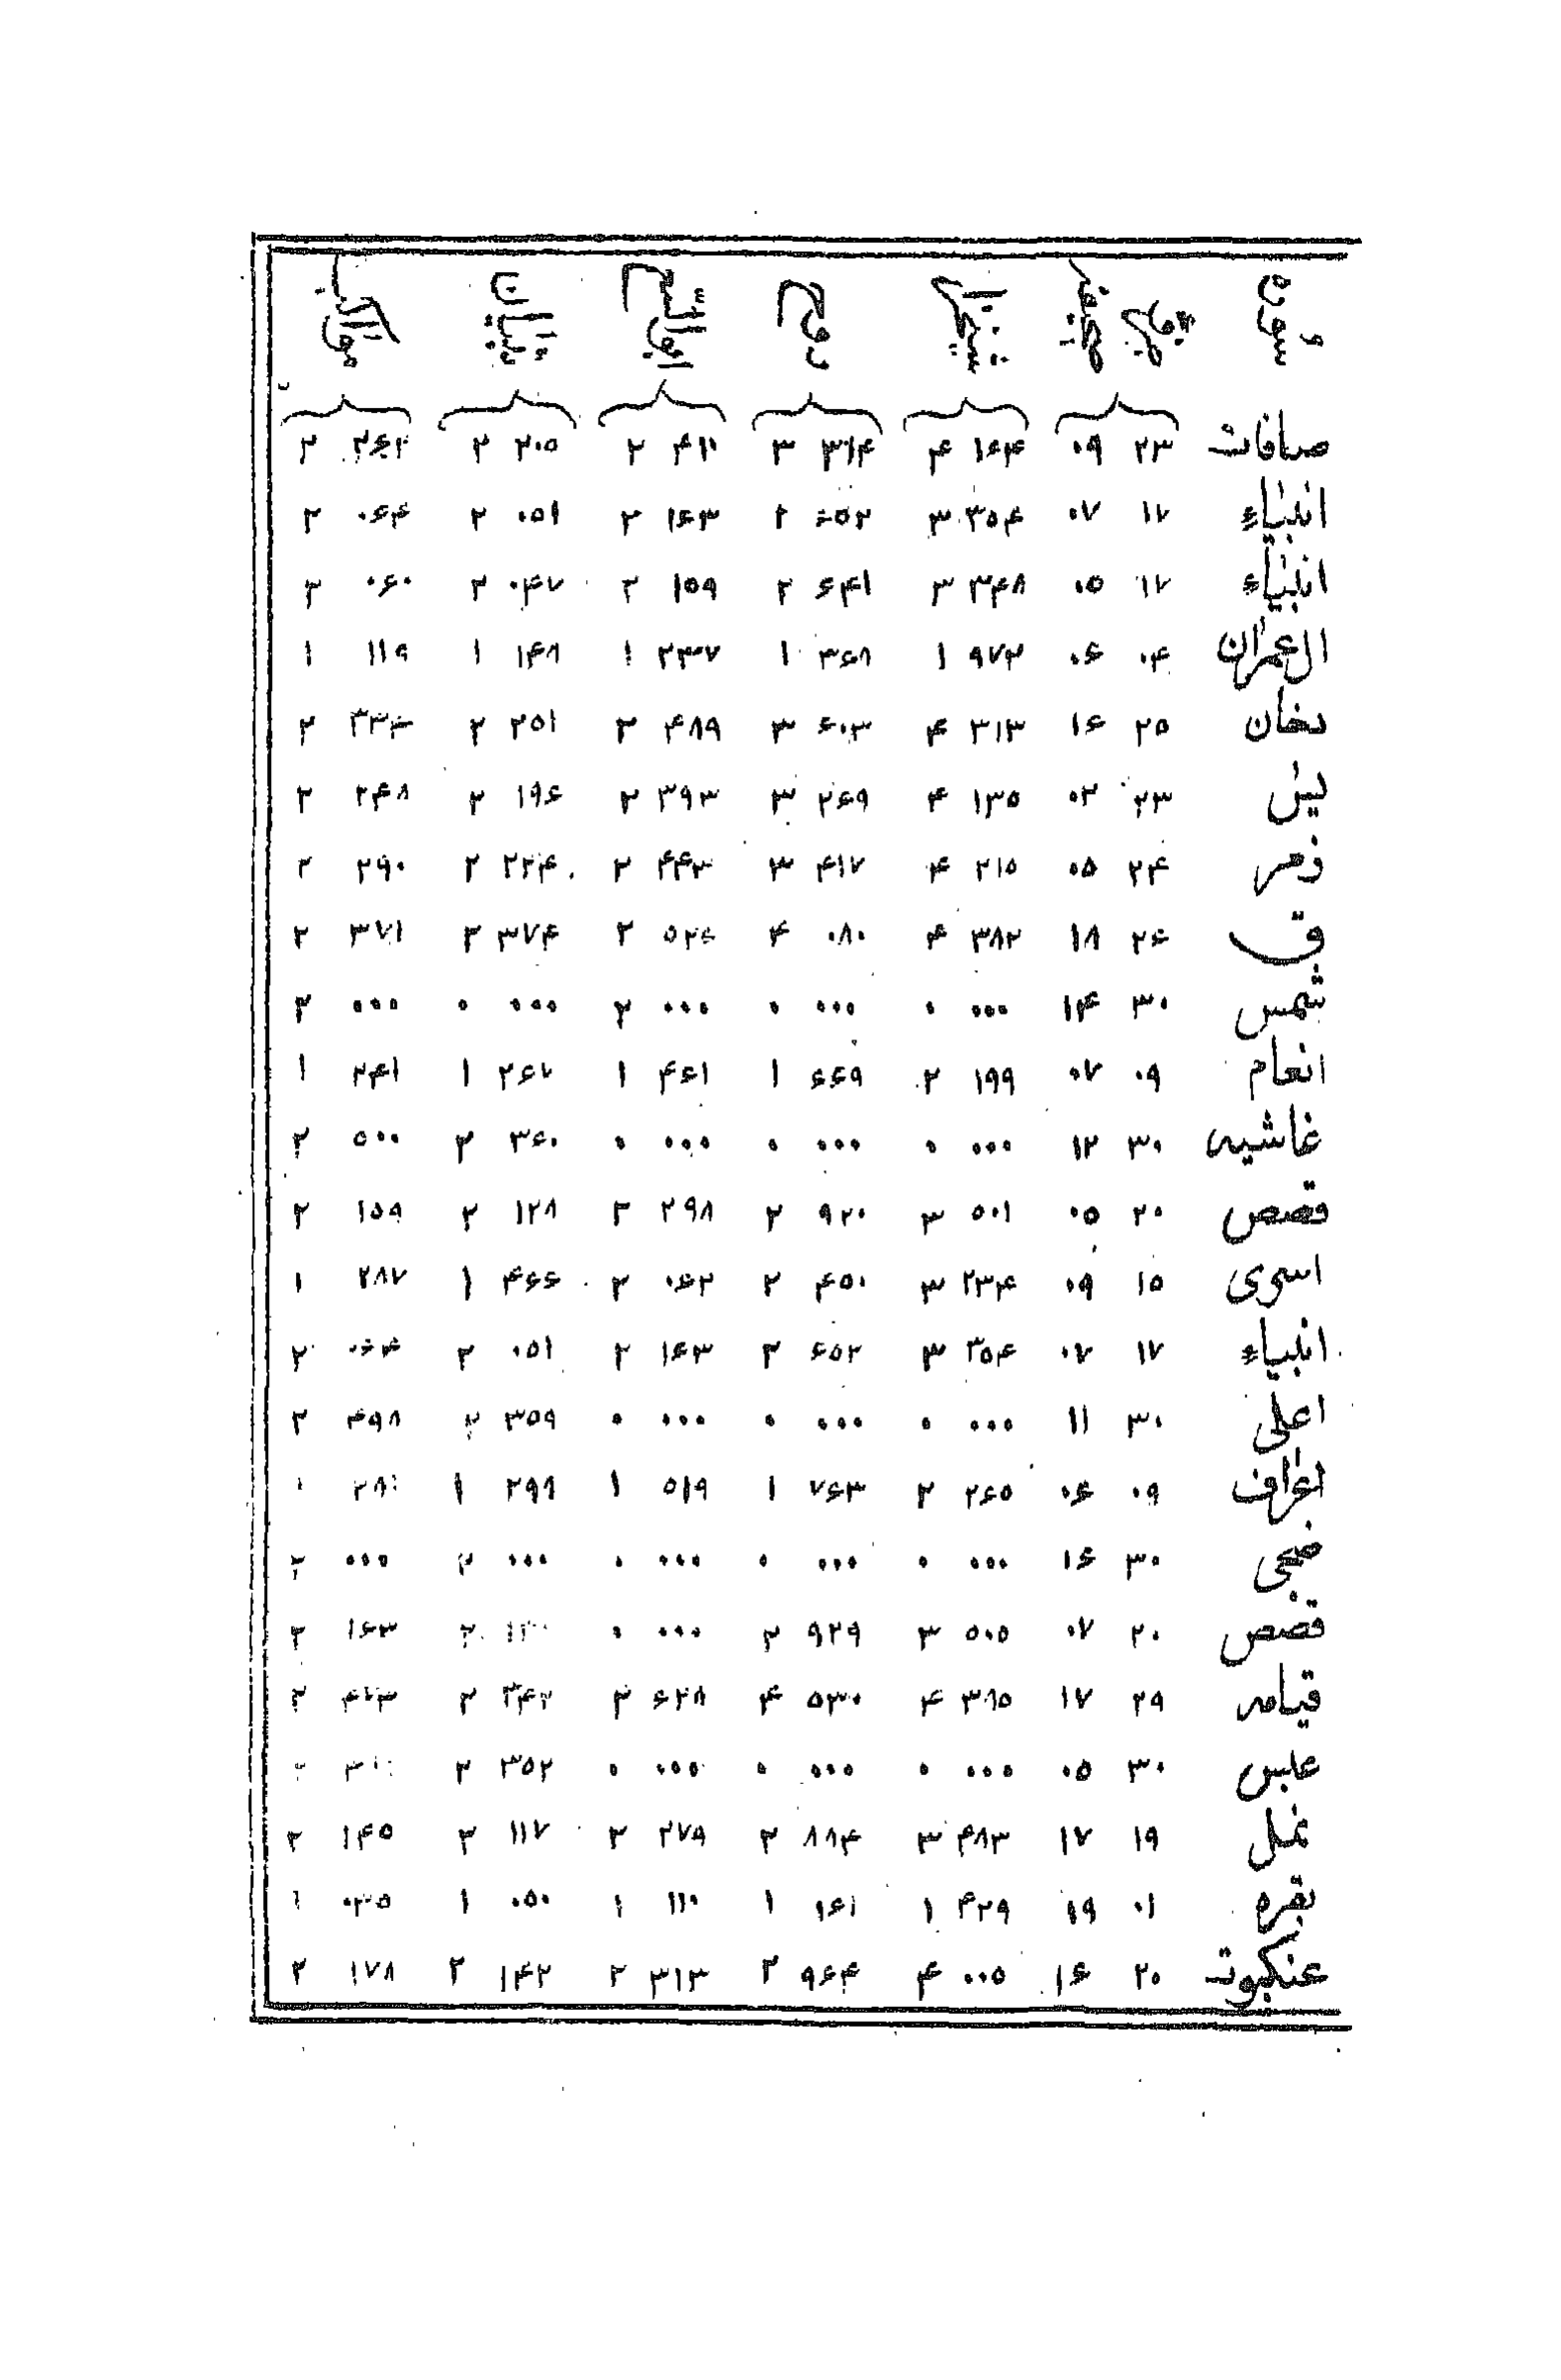 سوره
صافات ۲۳ ۰۹ ۱۶۴ ۴ ۳۱۴ ۳ ۴۱۰ ۲ ۲۰۵ ۲ ۲۶۲ ۲
انبیاء ۱۷ ۰۷ ۳۵۴ ۳ ۶۵۲ ۲ ۱۶۳ ۲ ۰۵۱ ۲ ۰۶۴ ۲
انبیاء ۱۷ ۰۵ ۳۴۸ ۳ ۶۴۱ ۲ ۱۵۹ ۲ ۰۴۷ ۲ ۰۶۰ ۲
ال عمران ۰۴ ۰۶ ۹۷۲ ۱ ۳۶۸ ۱ ۲۳۷ ۱ ۱۴۸ ۱ ۱۱۹ ۱
دخان ۲۵ ۱۶ ۳۱۳ ۴ ۶۰۳ ۳ ۴۸۹ ۲ ۲۵۱ ۲ ۳۳۴ ۲
یس ۲۳ ۰۲ ۱۳۵ ۴ ۲۶۹ ۳ ۳۹۳ ۲ ۱۹۶ ۲ ۲۴۸ ۲
زمر ۲۴ ۰۵ ۲۱۵ ۴ ۴۱۷ ۳ ۴۴۳ ۲ ۲۲۴ ۲ ۲۹۰ ۲
ق ۲۶ ۱۸ ۳۸۲ ۴ ۰۸۰ ۴ ۵۲۶ ۲ ۳۷۴ ۲ ۳۷۱ ۲
شمس ۳۰ ۱۴ ۰۰۰ ۰ ۰۰۰ ۰ ۰۰۰ ۲ ۰۰۰ ۰ ۰۰۰ ۲
انعام ۰۹ ۰۷ ۱۹۹ ۲ ۶۶۹ ۱ ۴۶۱ ۱ ۲۶۷ ۱ ۲۴۱ ۱
غاشیه ۳۰ ۱۲ ۰۰۰ ۰ ۰۰۰ ۰ ۰۰۰ ۰ ۳۶۰ ۲ ۵۰۰ ۲
قصص ۲۰ ۰۵ ۵۰۱ ۳ ۹۲۰ ۲ ۲۹۸ ۲ ۱۲۸ ۲ ۱۵۹ ۲
اسری ۱۵ ۰۹ ۲۳۴ ۳ ۴۵۰ ۲ ۰۶۲ ۲ ۴۶۶ ۱ ۲۸۷ ۱
انبیاء ۱۷ ۰۷ ۳۵۴ ۳ ۶۵۲ ۲ ۱۶۳ ۲ ۰۵۱ ۲ ۰۶۴ ۲
اعلی ۳۰ ۱۱ ۰۰۰ ۰ ۰۰۰ ۰ ۰۰۰ ۰ ۳۵۹ ۲ ۴۹۸ ۲
اعراف ۰۹ ۰۶ ۲۶۵ ۲ ۷۶۳ ۱ ۵۱۹ ۱ ۲۹۸ ۱
ضحی ۳۰ ۱۶ ۰۰۰ ۰ ۰۰۰ ۰ ۰۰۰ ۰ ۰۰۰ ۲ ۰۰۰ ۲
قصص ۲۰ ۰۷ ۵۰۵ ۳ ۹۲۹ ۲ ۰۰۰ ۰ ۲ ۱۶۳ ۲
قیامه ۲۹ ۱۷ ۳۸۵ ۴ ۵۳۰ ۴ ۶۲۸ ۲ ۳۴۲ ۲ ۲
عبس ۳۰ ۰۵ ۰۰۰ ۰ ۰۰۰ ۰ ۰۰۰ ۰ ۳۵۲ ۲
نمل ۱۹ ۱۷ ۴۸۳ ۳ ۸۸۴ ۲ ۲۷۹ ۲ ۱۱۷ ۲ ۱۴۵ ۲
بقره ۰۱ ۱۹ ۴۲۹ ۱ ۱۶۱ ۱ ۱۱۰ ۱ ۰۵۰ ۱ ۰۳۵ ۱
عنکبوت ۲۰ ۱۶ ۰۰۵ ۴ ۹۶۴ ۲ ۳۱۳ ۲ ۱۴۲ ۲ ۱۷۸ ۲